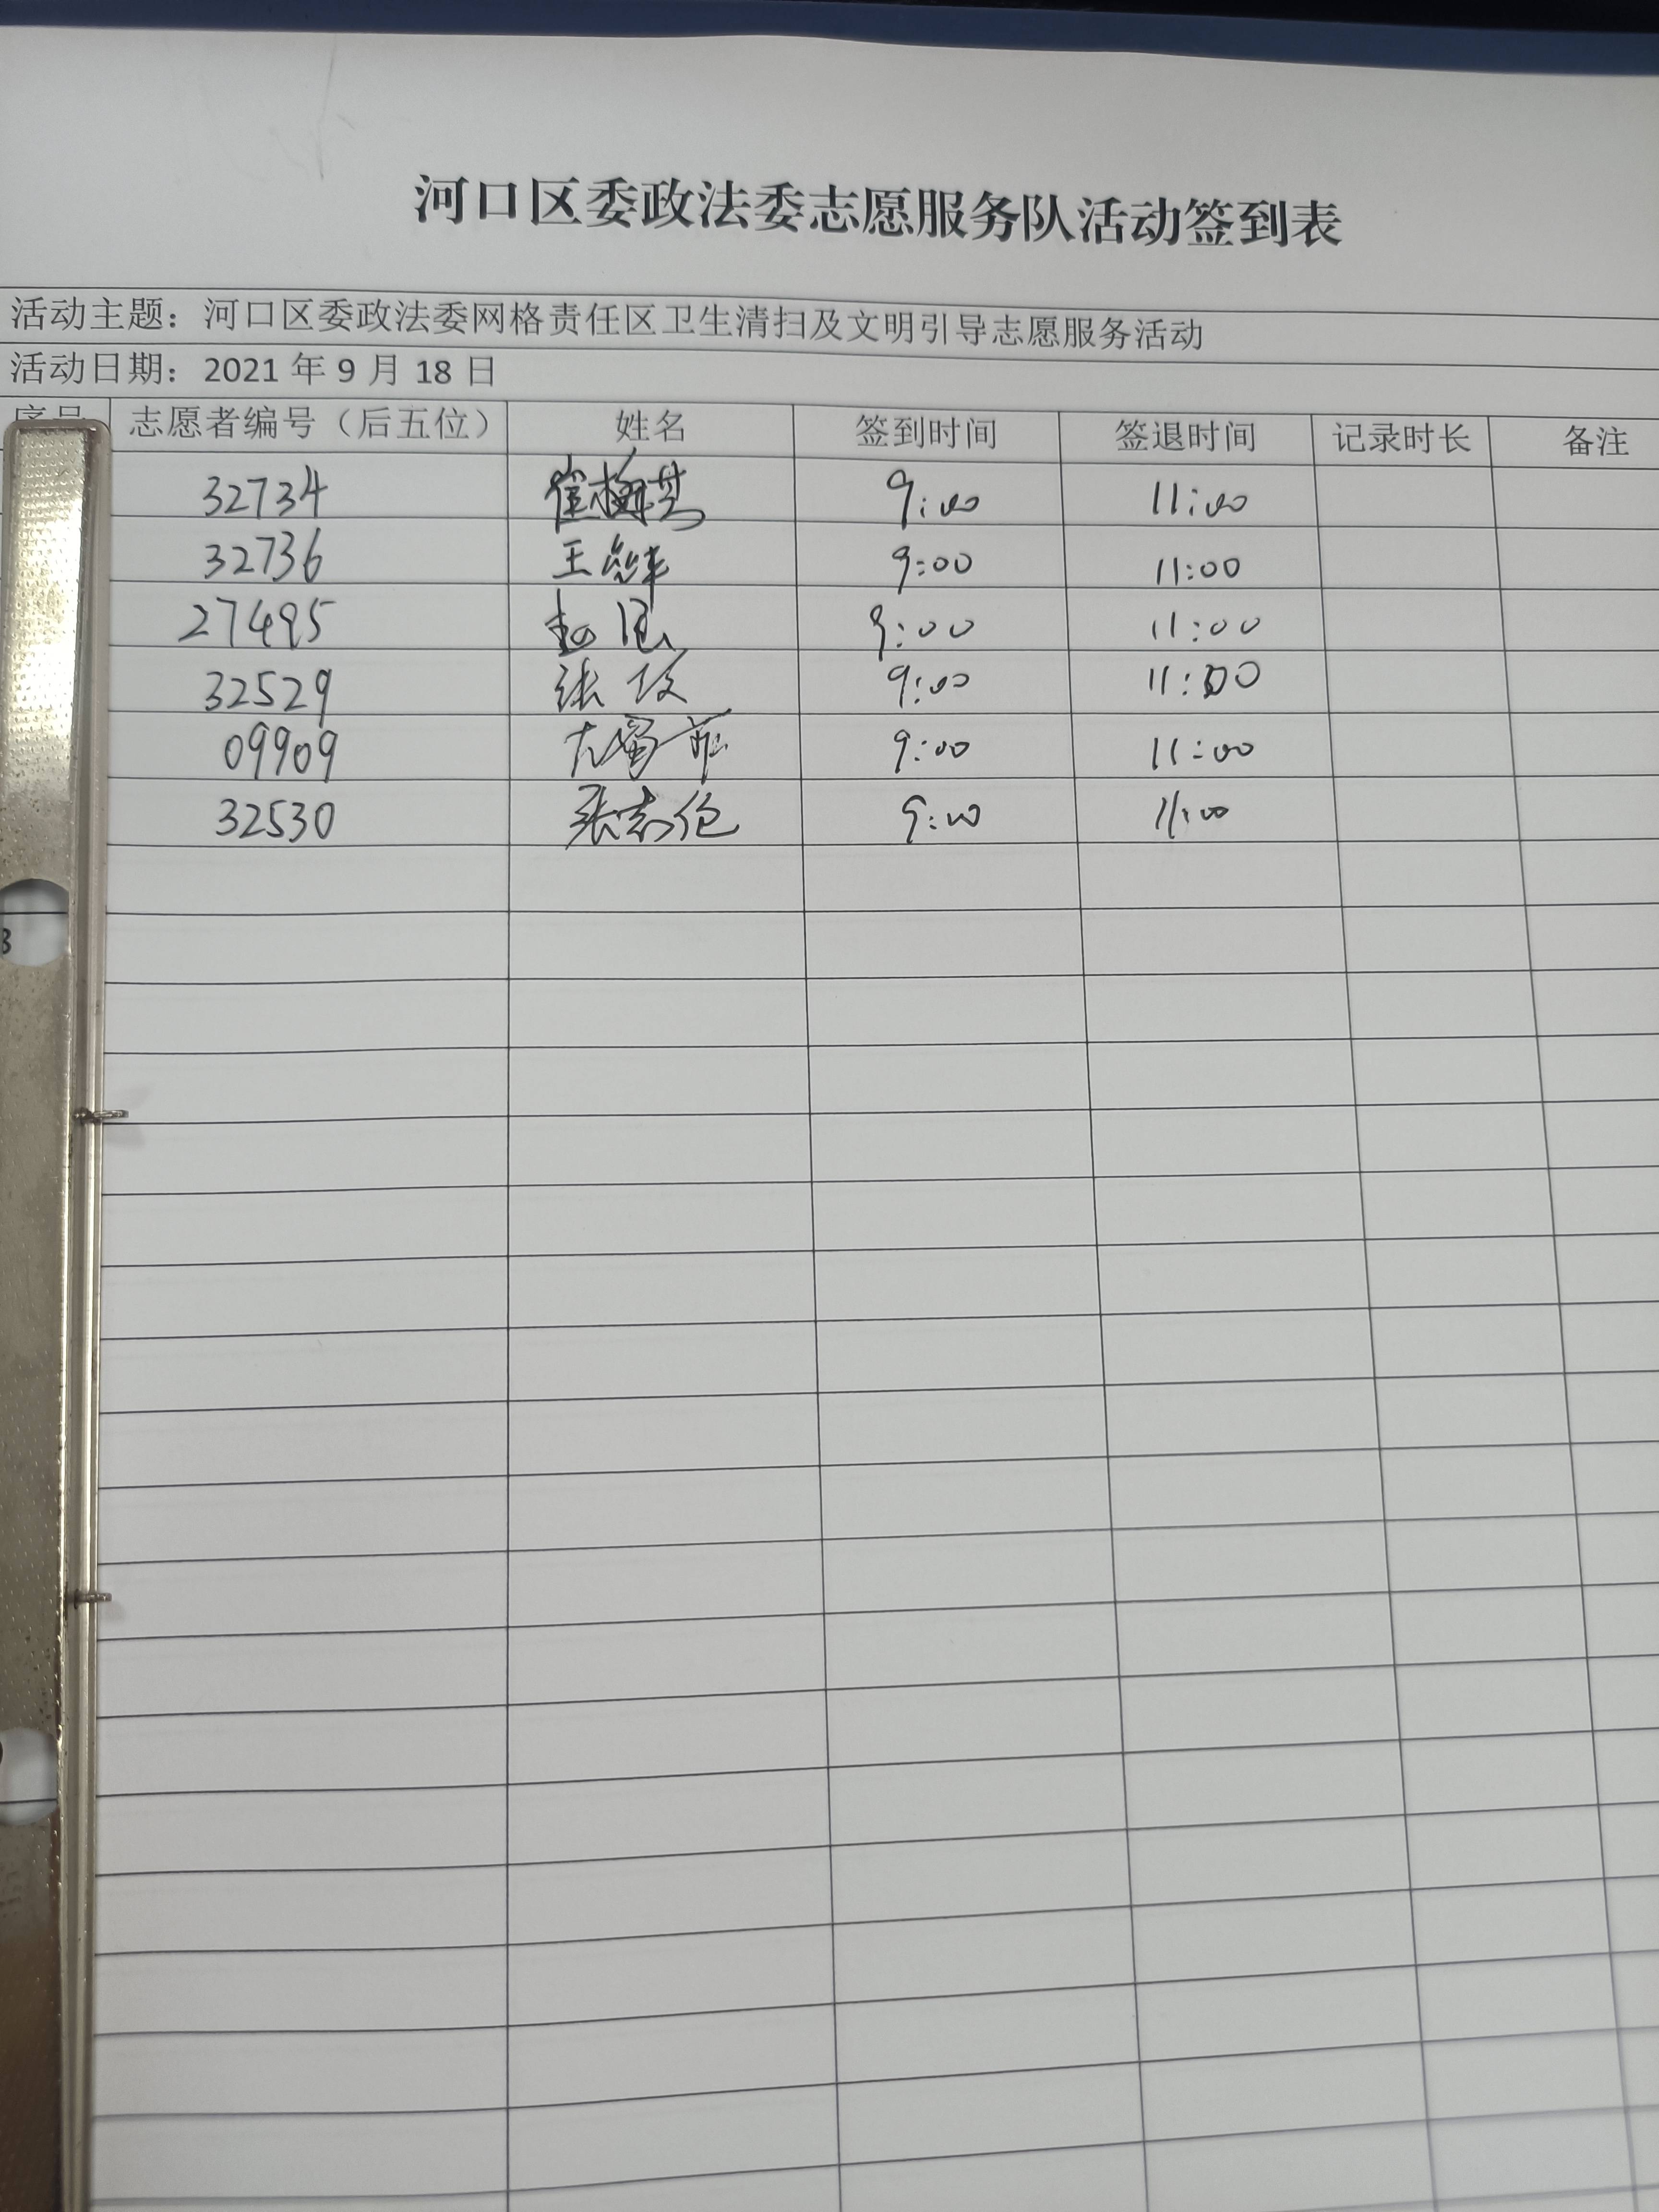 河口区委政法委志愿服务队活动签到表
活动主题：河口区委政法委网格责任区卫生清扫及文明引导志愿服务活动
活动日期：2021 年 9 月 18 日
序号 志愿者编号（后五位） 姓名 签到时间 签退时间 记录时长 备注
32734 崔梅芸 9:00 11:00
32736 王 9:00 11:00
27495 赵 9:00 11:00
32529 张 9:00 11:00
09909 9:00 11:00
32530 张志伦 9:00 11:00
3